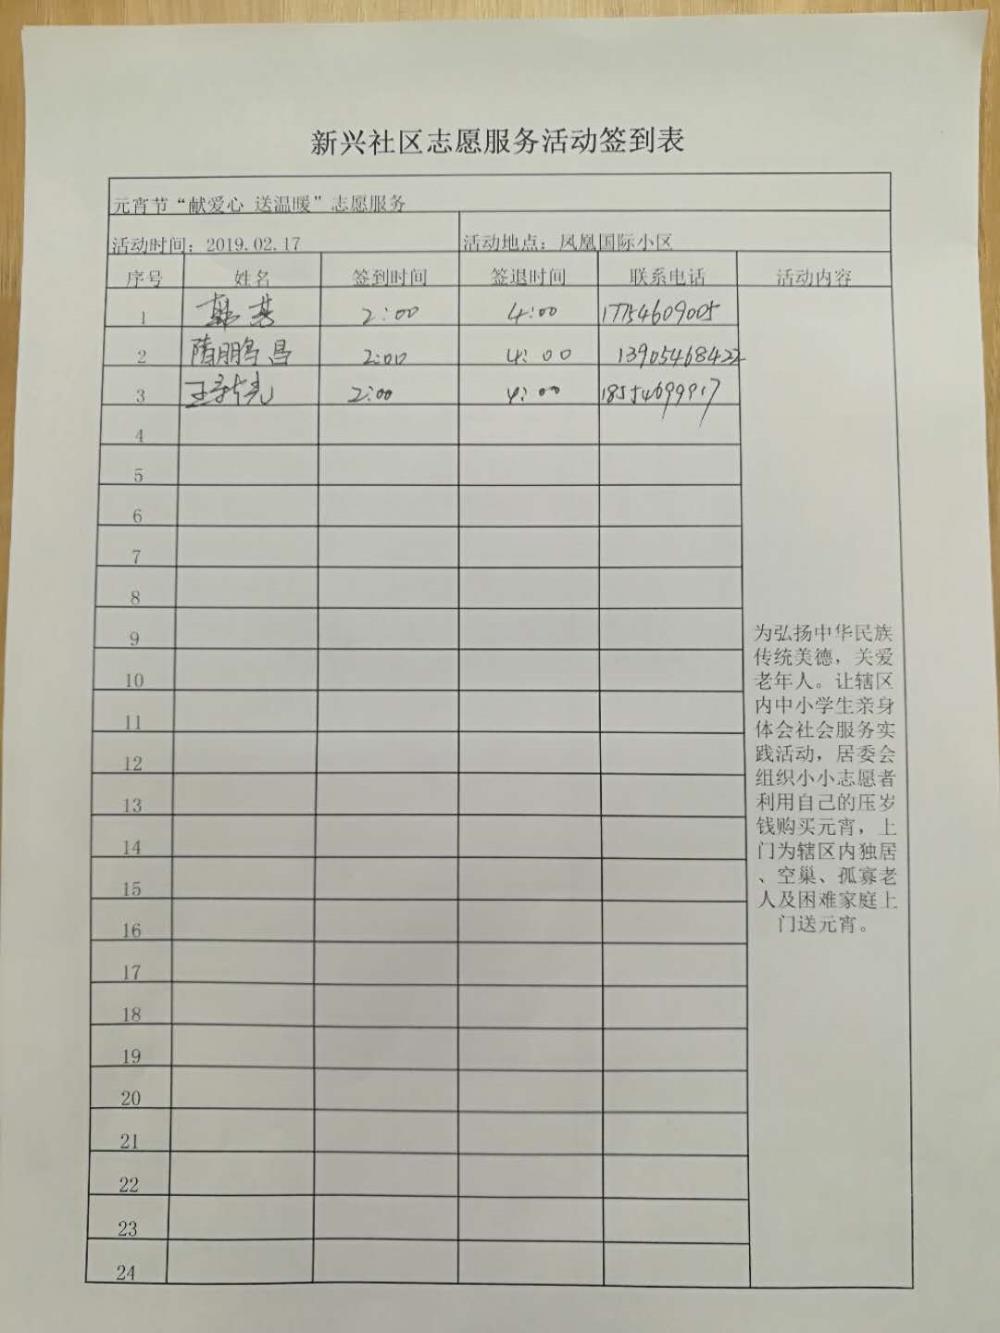 新兴社区志愿服务活动签到表
元宵节“献爱心 送温暖”志愿服务
活动时间：2019.02.17 活动地点：凤凰国际小区
序号 姓名 签到时间 签退时间 联系电话 活动内容
1 2:00 4:00 17754609005
2 隋鹏昌 2:00 4:00 13905468422
3 2:00 4:00 18554699917
4
5
6
7
8
9
10
11
12
13
14
15
16
17
18
19
20
21
22
23
24
为弘扬中华民族
传统美德，关爱
老年人。让辖区
内中小学生亲身
体会社会服务实
践活动，居委会
组织小小志愿者
利用自己的压岁
钱购买元宵，上
门为辖区内独居
、空巢、孤寡老
人及困难家庭上
门送元宵。